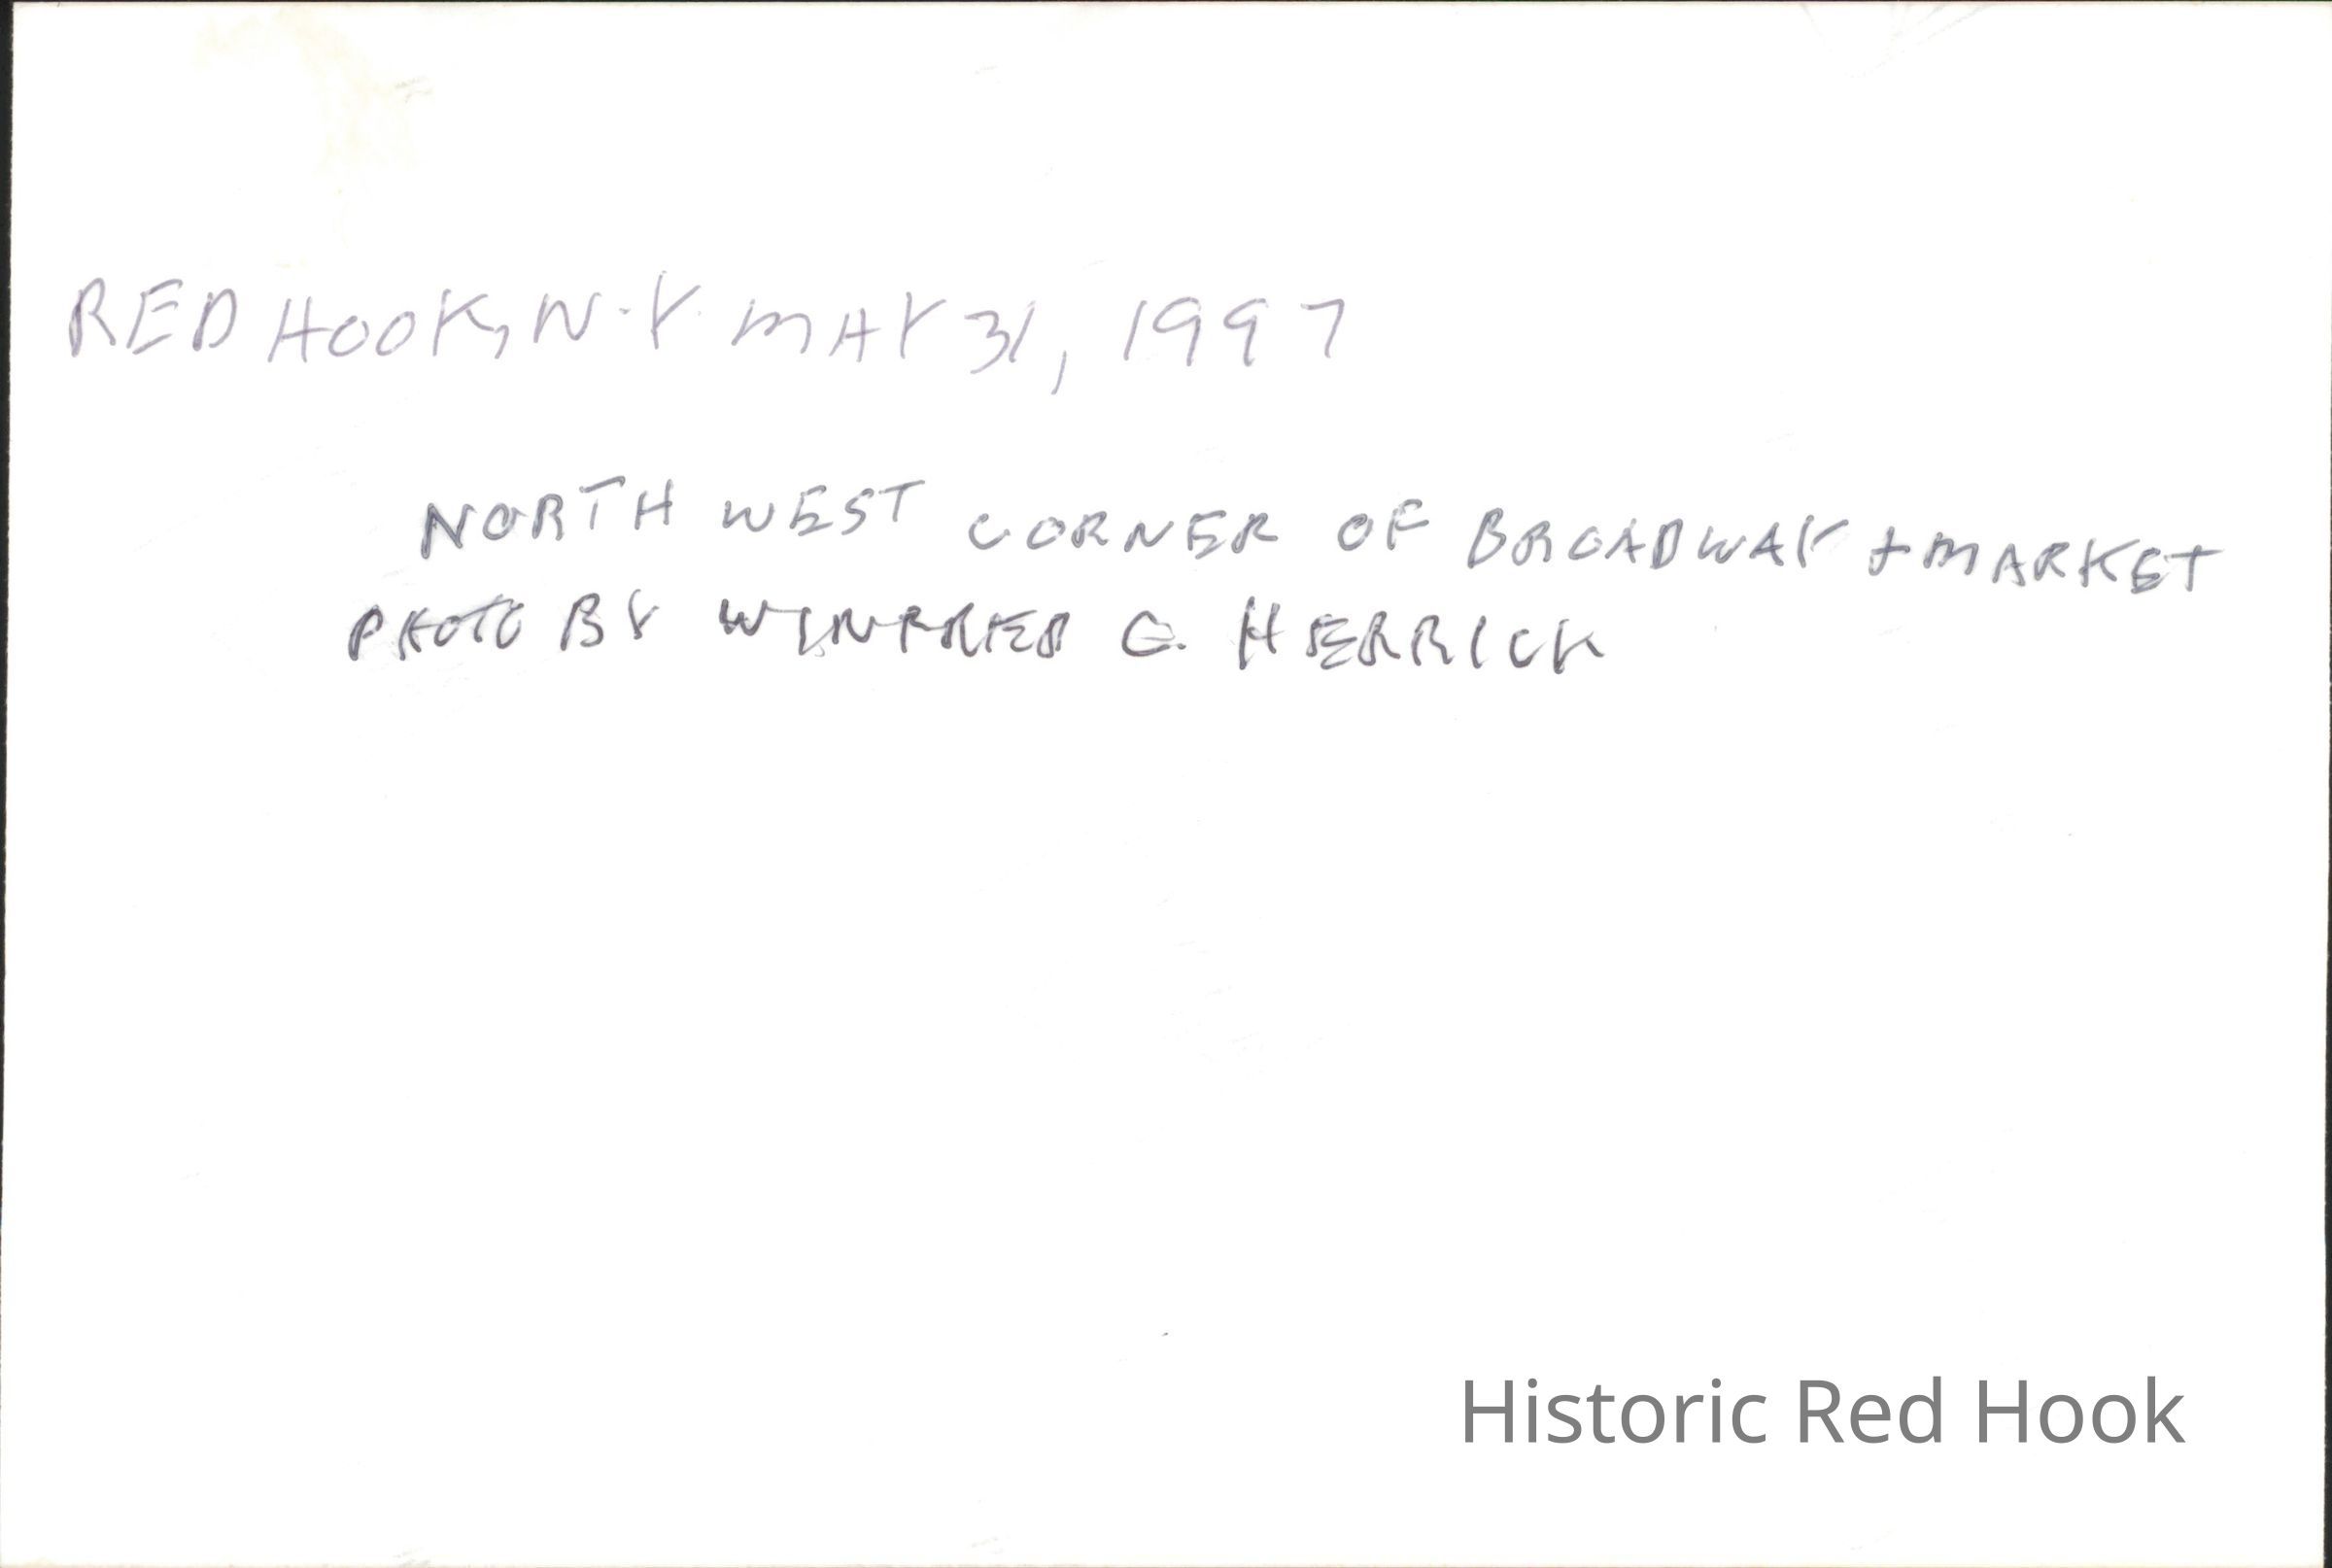 RED HOOK, N.Y. MAY 31, 1997
NORTH WEST CORNER OF BROADWAY + MARKET
PHOTO BY WINFRED G. HERRICK
Historic Red Hook